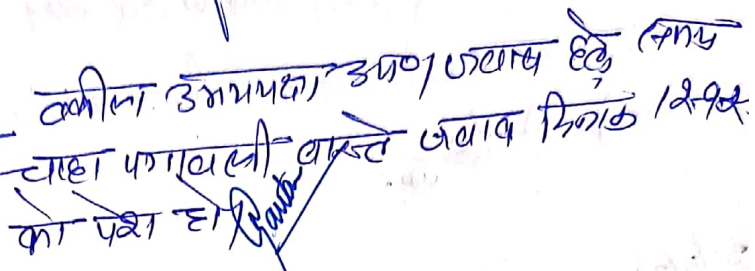 वकील उभयपक्ष उप0। जवाब हेतु समय
चाहा पत्रावली वास्ते जवाब दिनांक
को पेश हो